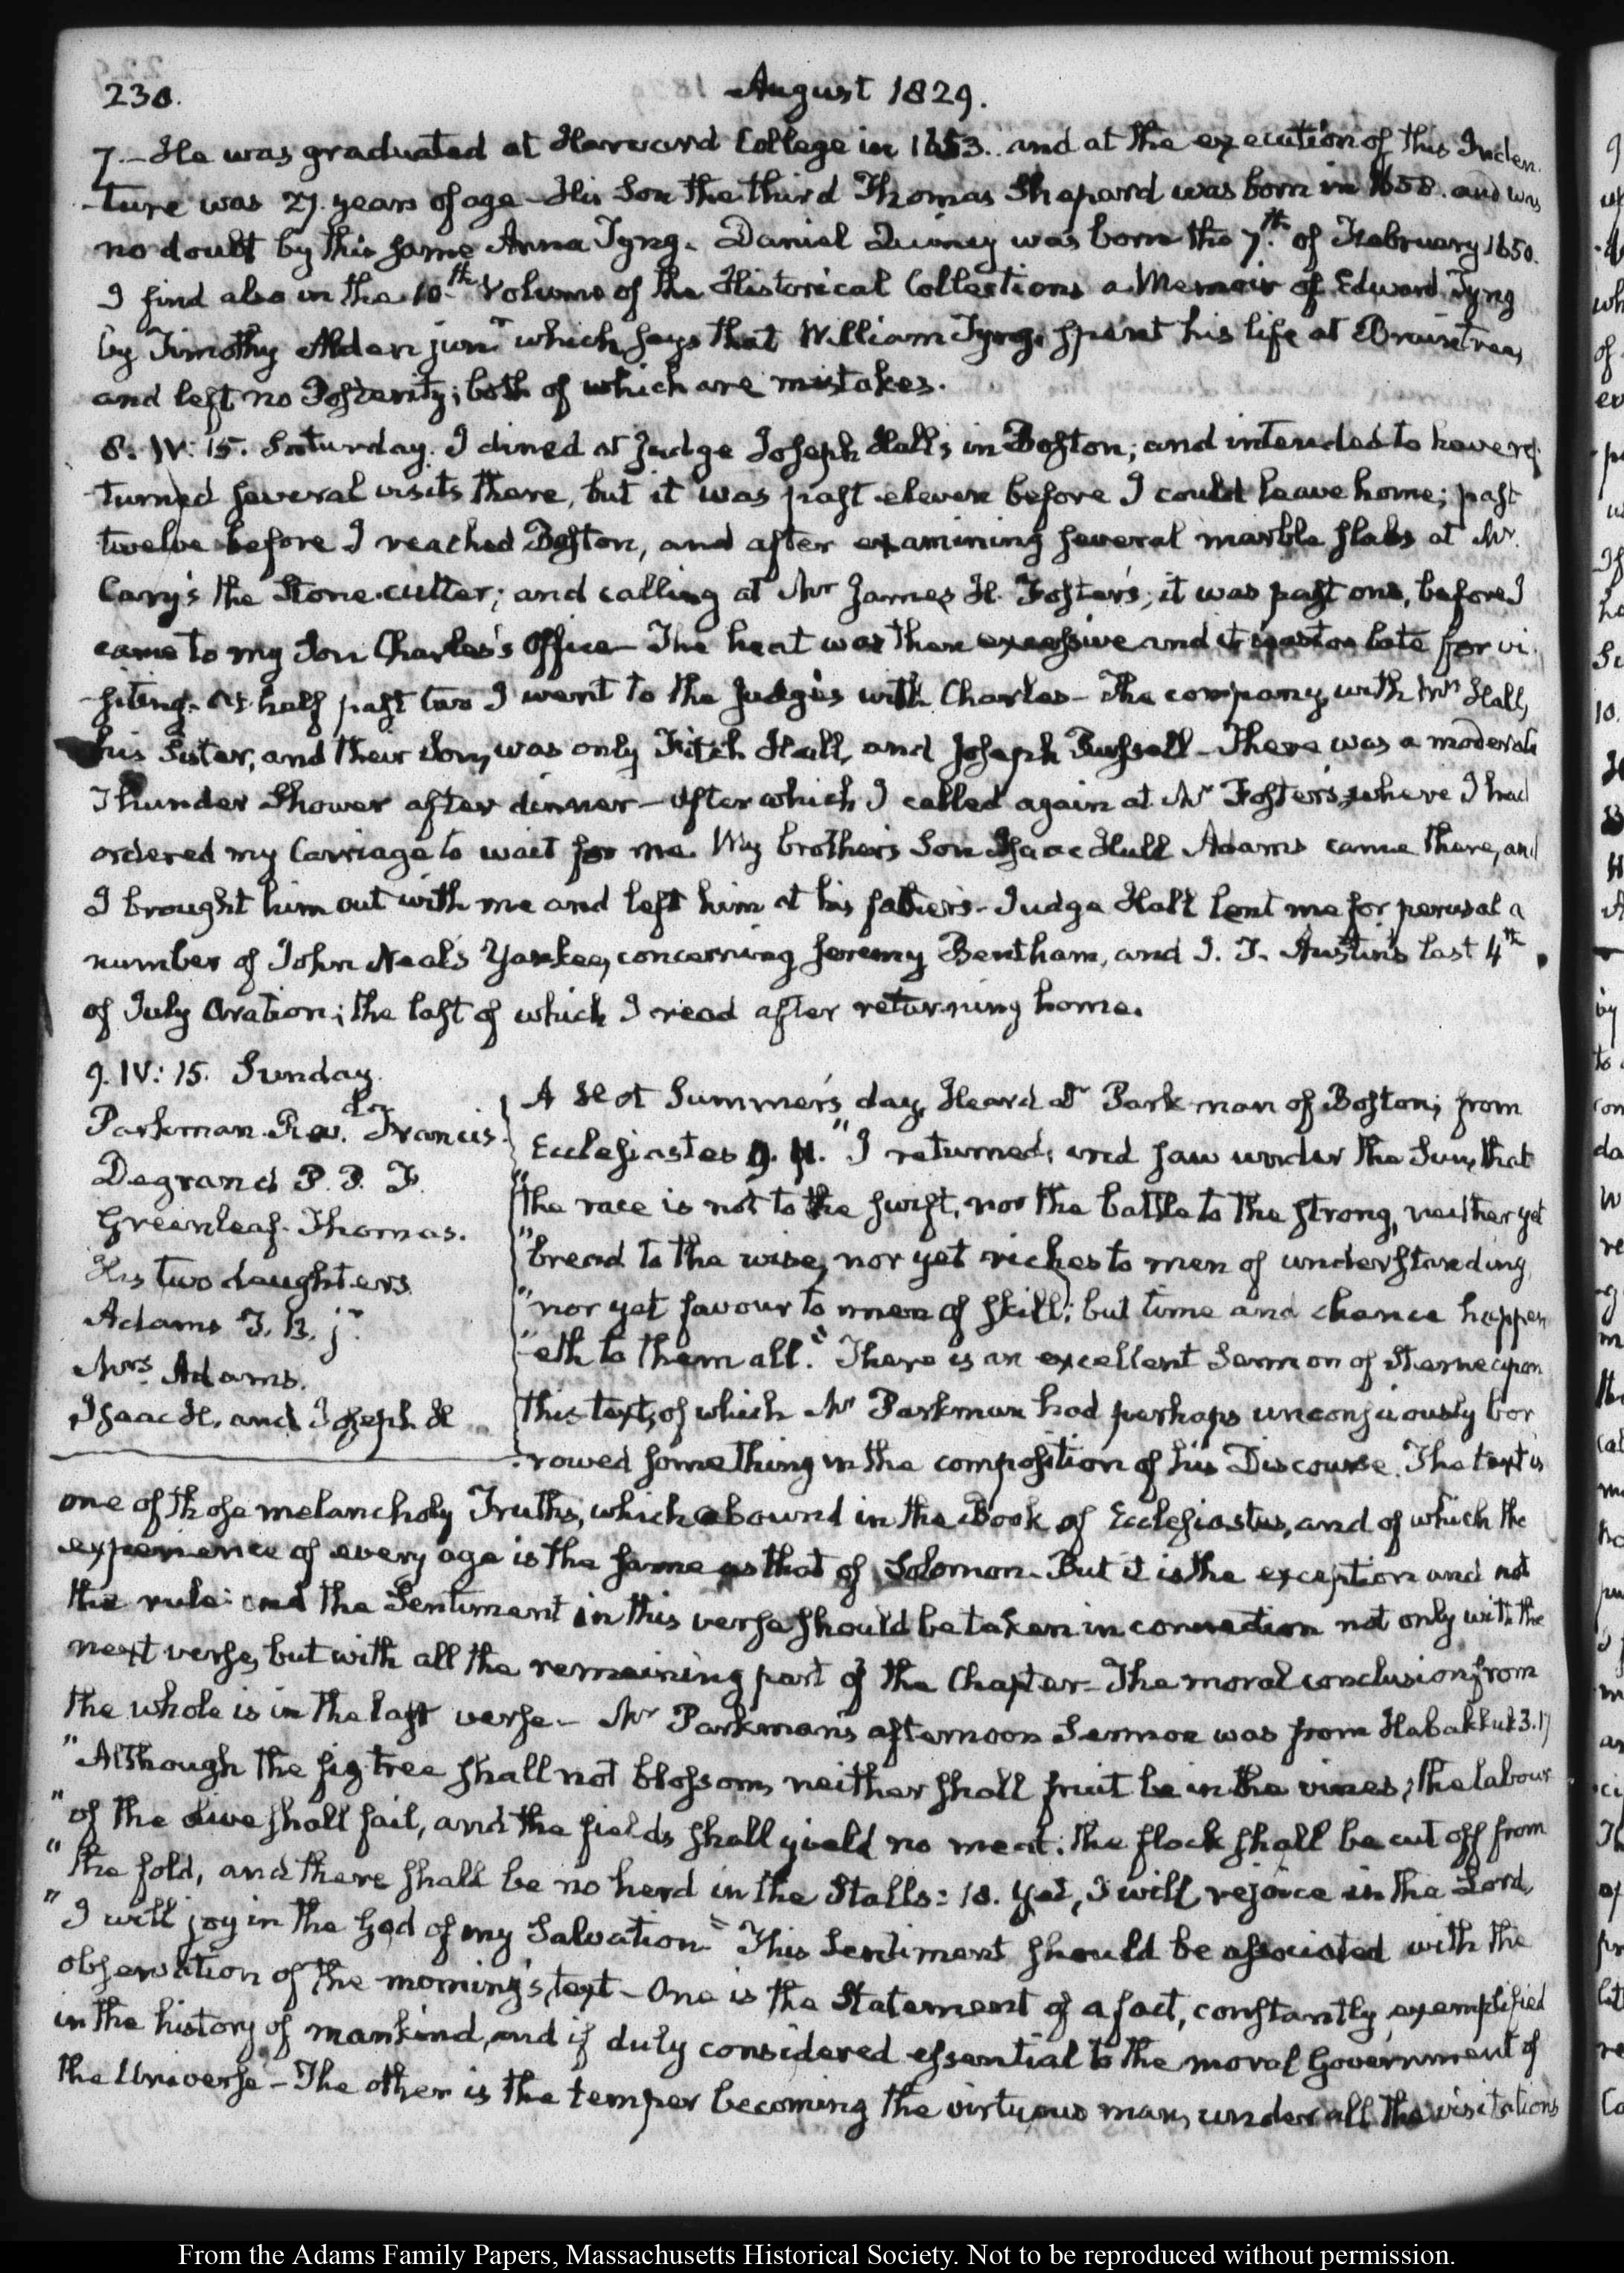 230.
August 1829.
7.—He was graduated at Harvard College in 1653. and at the execution of this Inden-
-ture was 27. years of age—His Son the third Thomas Shepard was born in 1658. and was
no doubt by this same Anna Tyng. Daniel Quincy was born the 7.th of February 1650.
I find also in the 10.th Volume of the Historical Collections a Memoir of Edward Tyng
by Timothy Alden junr. which says that William Tyng spent his life at Braintree,
and left no Posterity; both of which are mistakes.
8. IV: 15. Saturday. I dined at Judge Joseph Hall's in Boston; and intended to have re-
-turned several visits there, but it was past eleven before I could leave home; past
twelve before I reached Boston, and after examining several marble slabs at Mr.
Cary's the Stone-cutter; and calling at Mr James H. Foster's, it was past one, before I
came to my Son Charles's Office—The heat was then excessive and it was too late for vi-
-siting. At half past two I went to the Judge's with Charles—The company, with Mrs Hall,
his Sister, and their Son, was only Fitch Hall, and Joseph Russell—There was a moderate
Thunder Shower after dinner—after which I called again at Mr Foster's, where I had
ordered my Carriage to wait for me. My brother's Son Isaac Hull Adams came there, and
I brought him out with me and left him at his father's—Judge Hall lent me for perusal a
number of John Neal's Yankee, concerning Jeremy Bentham, and J. T. Austin's last 4th
of July Oration; the last of which I read after returning home.
9. IV: 15. Sunday.
Parkman Rev. Dr Francis.
Degrand P. P. F.
Greenleaf. Thomas.
His two daughters.
Adams T. B. jr.
Mrs Adams.
Isaac H. and Joseph H
A Hot Summer's day, Heard Dr Parkman of Boston; from
Ecclesiastes 9. 11. "I returned, and saw under the Sun, that
"the race is not to the swift, nor the battle to the strong, neither yet
"bread to the wise, nor yet riches to men of understanding,
"nor yet favour to men of skill; but time and chance happen-
"-eth to them all." There is an excellent Sermon of Sterne upon
this text, of which Mr Parkman had perhaps unconsciously bor-
-rowed something in the composition of his Discourse. The text is
one of those melancholy Truths, which abound in the Book of Ecclesiastes, and of which the
experience of every age is the same as that of Solomon—But it is the exception and not
the rule: and the Sentiment in this verse should be taken in connection not only with the
next verse, but with all the remaining part of the Chapter—The moral conclusion from
the whole is in the last verse.—Mr Parkman's afternoon Sermon was from Habakkuk 3. 17
"Although the fig-tree shall not blossom, neither shall fruit be in the vines; the labour
"of the olive shall fail, and the fields shall yield no meat; the flock shall be cut off from
"the fold, and there shall be no herd in the Stalls: 18. Yet, I will rejoice in the Lord,
"I will joy in the God of my Salvation." This Sentiment should be associated with the
observation of the morning's text—One is the Statement of a fact, constantly exemplified
in the history of mankind, and if duly considered essential to the moral Government of
the Universe—The other is the temper becoming the virtuous man, under all the visitations
From the Adams Family Papers, Massachusetts Historical Society. Not to be reproduced without permission.